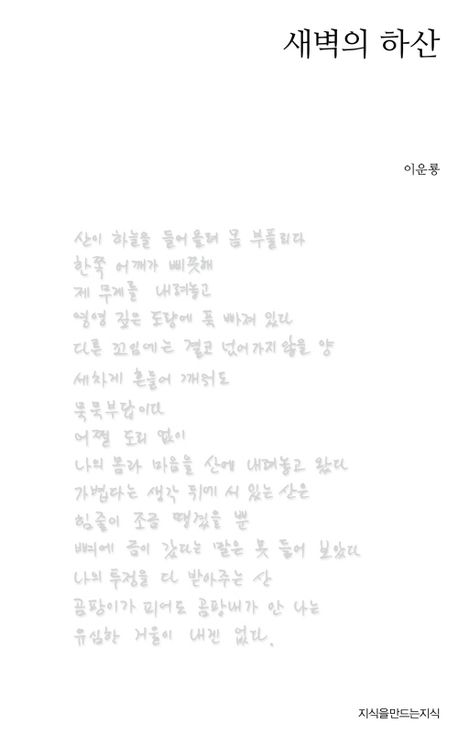 새벽의 하산
이운룡
산이 하늘을 들어올려 몸 부풀리다
한쪽 어깨가 삐끗해
제 무게를 내려놓고
영영 깊은 도랑에 푹 빠져 있다
다른 꼬임에는 결코 넘어가지 않을 양
세차게 흔들어 깨워도
묵묵부답이다
어쩔 도리 없이
나의 몸과 마음을 산에 내려놓고 왔다
가볍다는 생각 뒤에 서 있는 산은
힘줄이 조금 땡겼을 뿐
뼈에 금이 갔다는 말은 못 들어 보았다
나의 투정을 다 받아주는 산
곰팡이가 피어도 곰팡내가 안 나는
유심한 거울이 내겐 없다.
지식을만드는지식